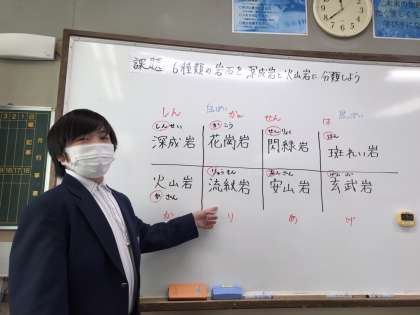 課題 6種類の岩石を深成岩と火山岩に分類しよう
しん かん せん は
しんせい かこう せんりょく はん
深成岩 花崗岩 閃緑岩 斑れい岩
りゅうもん あんざん げんぶ
火山岩 流紋岩 安山岩 玄武岩
かざん
か り あ げ